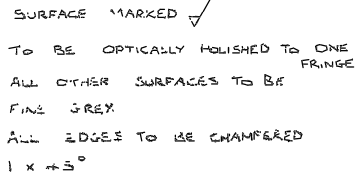 SURFACE MARKED √
TO BE OPTICALLY POLISHED TO ONE
FRINGE
ALL OTHER SURFACES TO BE
FINE GREY
ALL EDGES TO BE CHAMFERED
1 x 45°